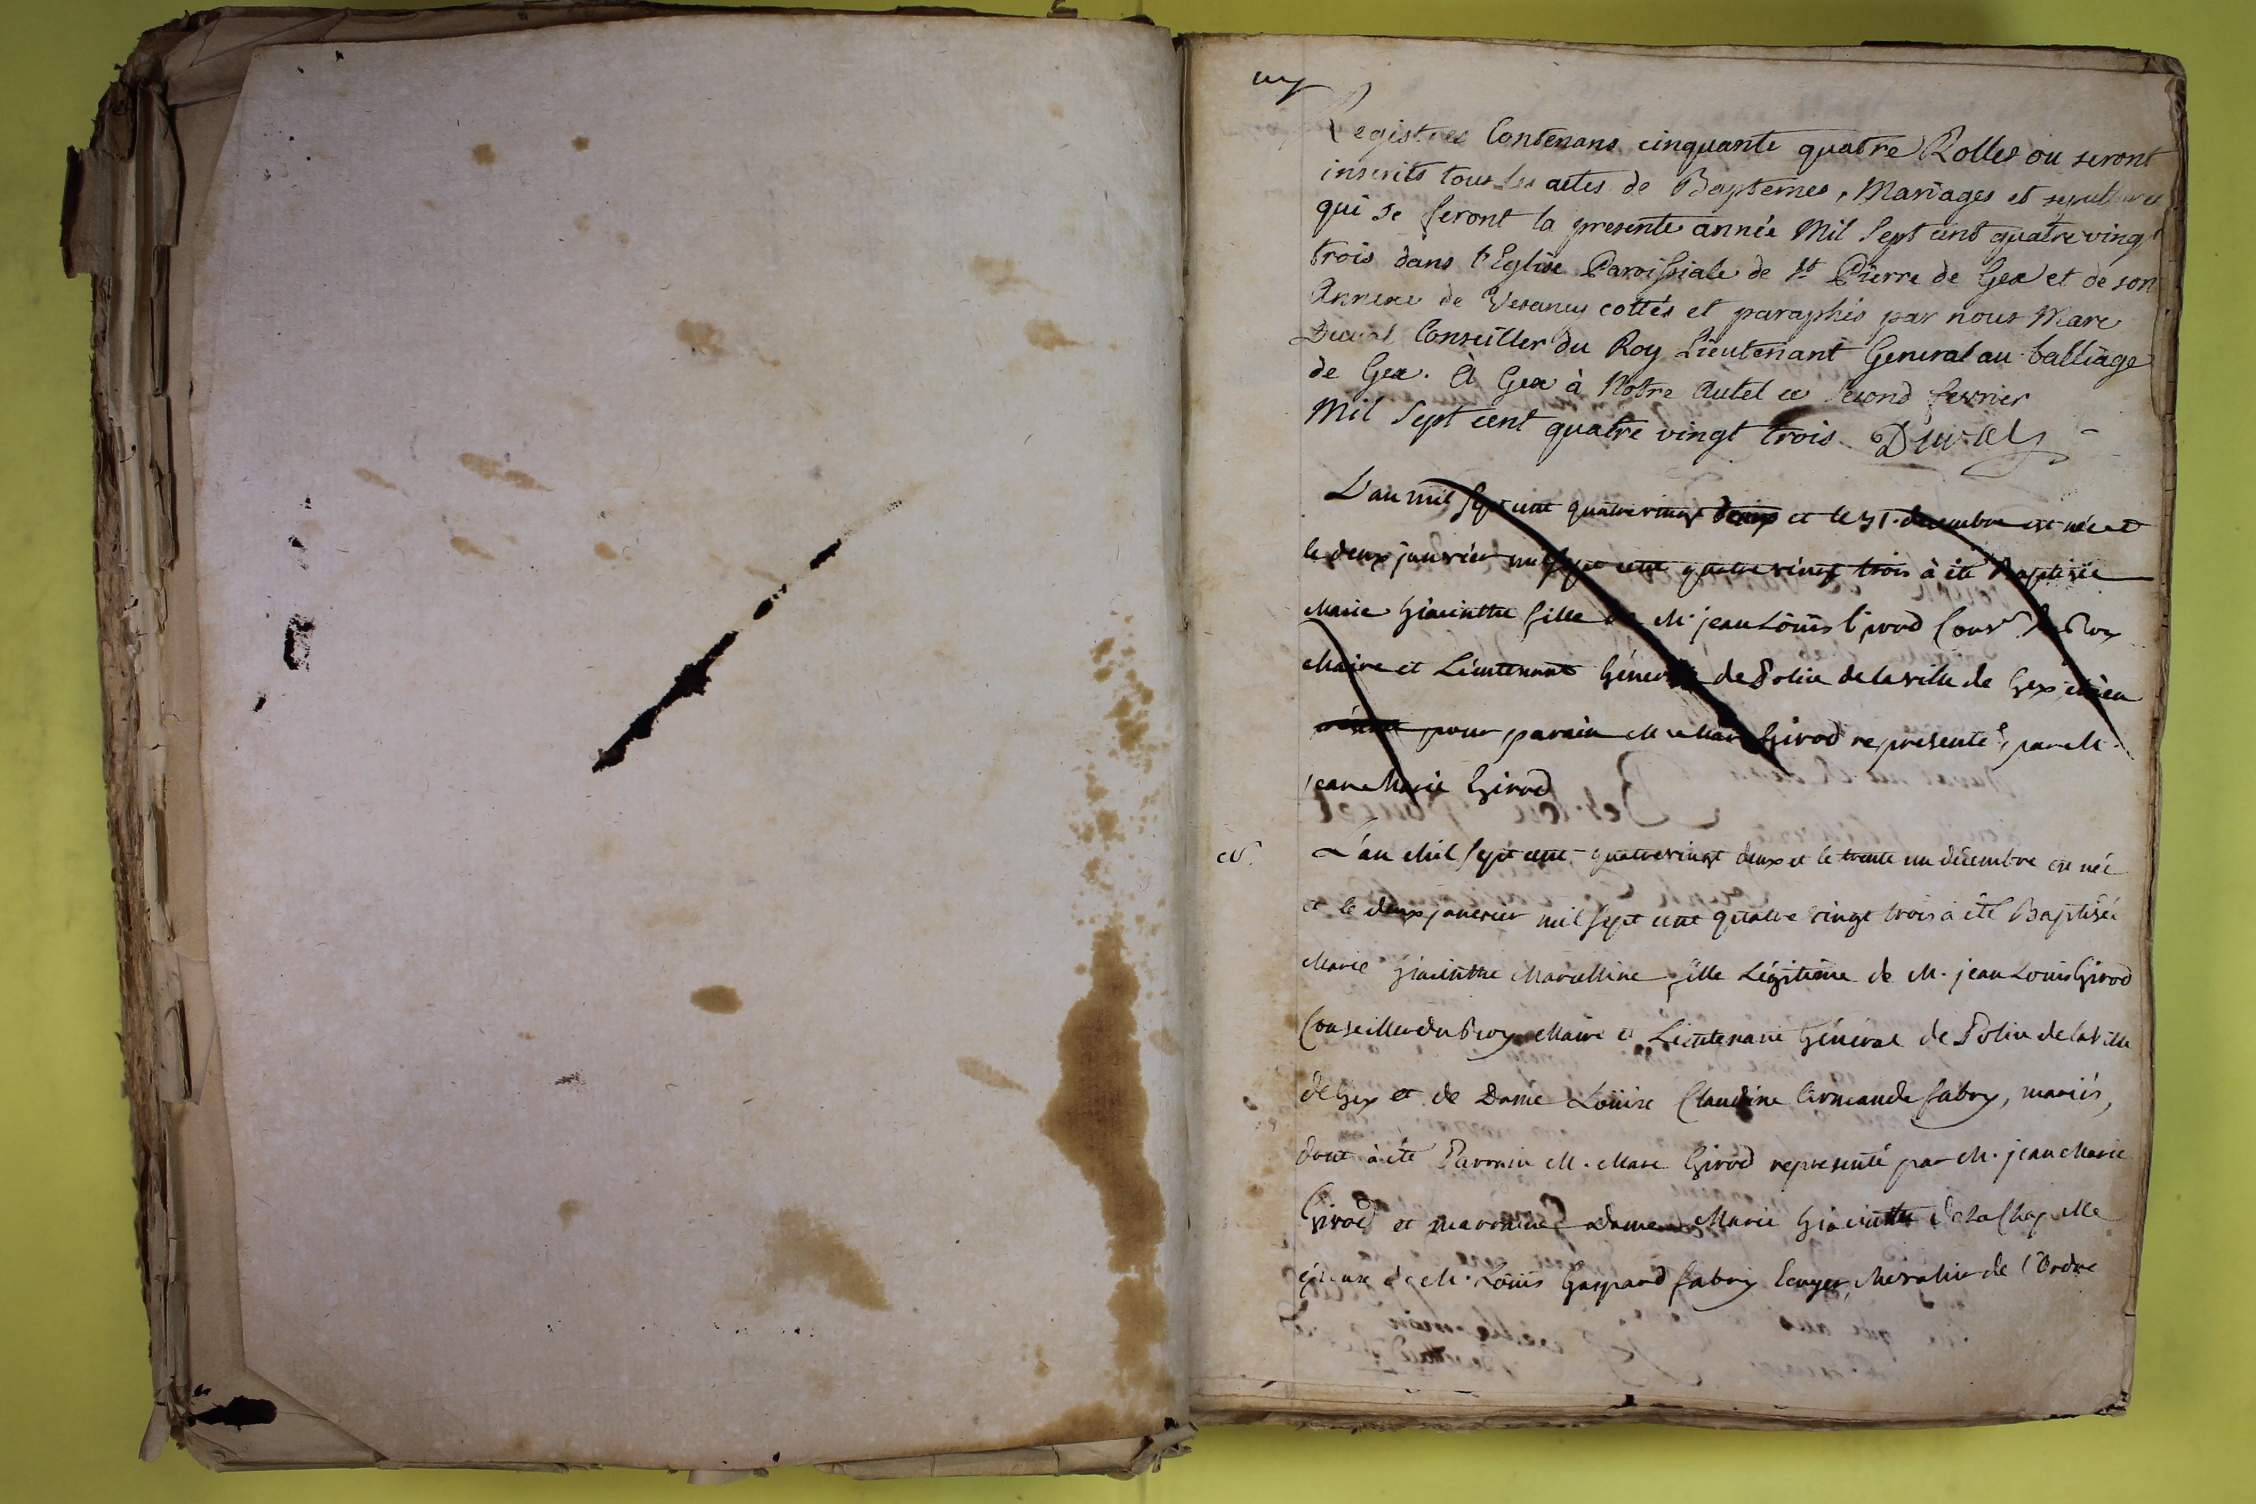 Registres Contenans cinquante quatre Rolles ou seront
inscrits tous les actes de Baptemes, Mariages et sepultures
qui se feront la presente année Mil Sept cent quatre vingt
trois dans l'Eglise Paroissiale de St Pierre de Gex et de son
Annexe de Vesancy cottés et paraphés par nous Marc
Duval Conseiller du Roy Lieutenant General au balliage
de Gex. À Gex à Notre Autel ce second fevrier
Mil Sept cent quatre vingt trois Duval
L'an mil sept cent quatre vingt deux et le 31. decembre est née et
le deux janvier mil sept cent quatre vingt trois à été Baptisée
Marie Hiacinthe fille de M. jean Louis Girod Consr du Roy
Maire et Lieutenant Général de Police de la ville de Gex
pour parain M. Marc Girod representé par M.
jean Marie Girod
N. L'an Mil sept cent quatrevingt deux et le trente un décembre est née
et le deux janvier mil sept cent quatre vingt trois à été Baptisée
Marie Hiacinthe Marcelline fille Légitime de M. jean Louis Girod
Conseiller du Roy Maire et Lieutenant Général de Police de la Ville
de Gex et de Dame Loüise Claudine Armande fabry, mariés,
dont à été Parrain M. Marc Girod representé par M. jean Marie
Girod et marraine Dame Marie Hiacinthe de la Chapelle
épouse de M. Loüis Gaspard fabry Ecuyer, Chevalier de l'Ordre